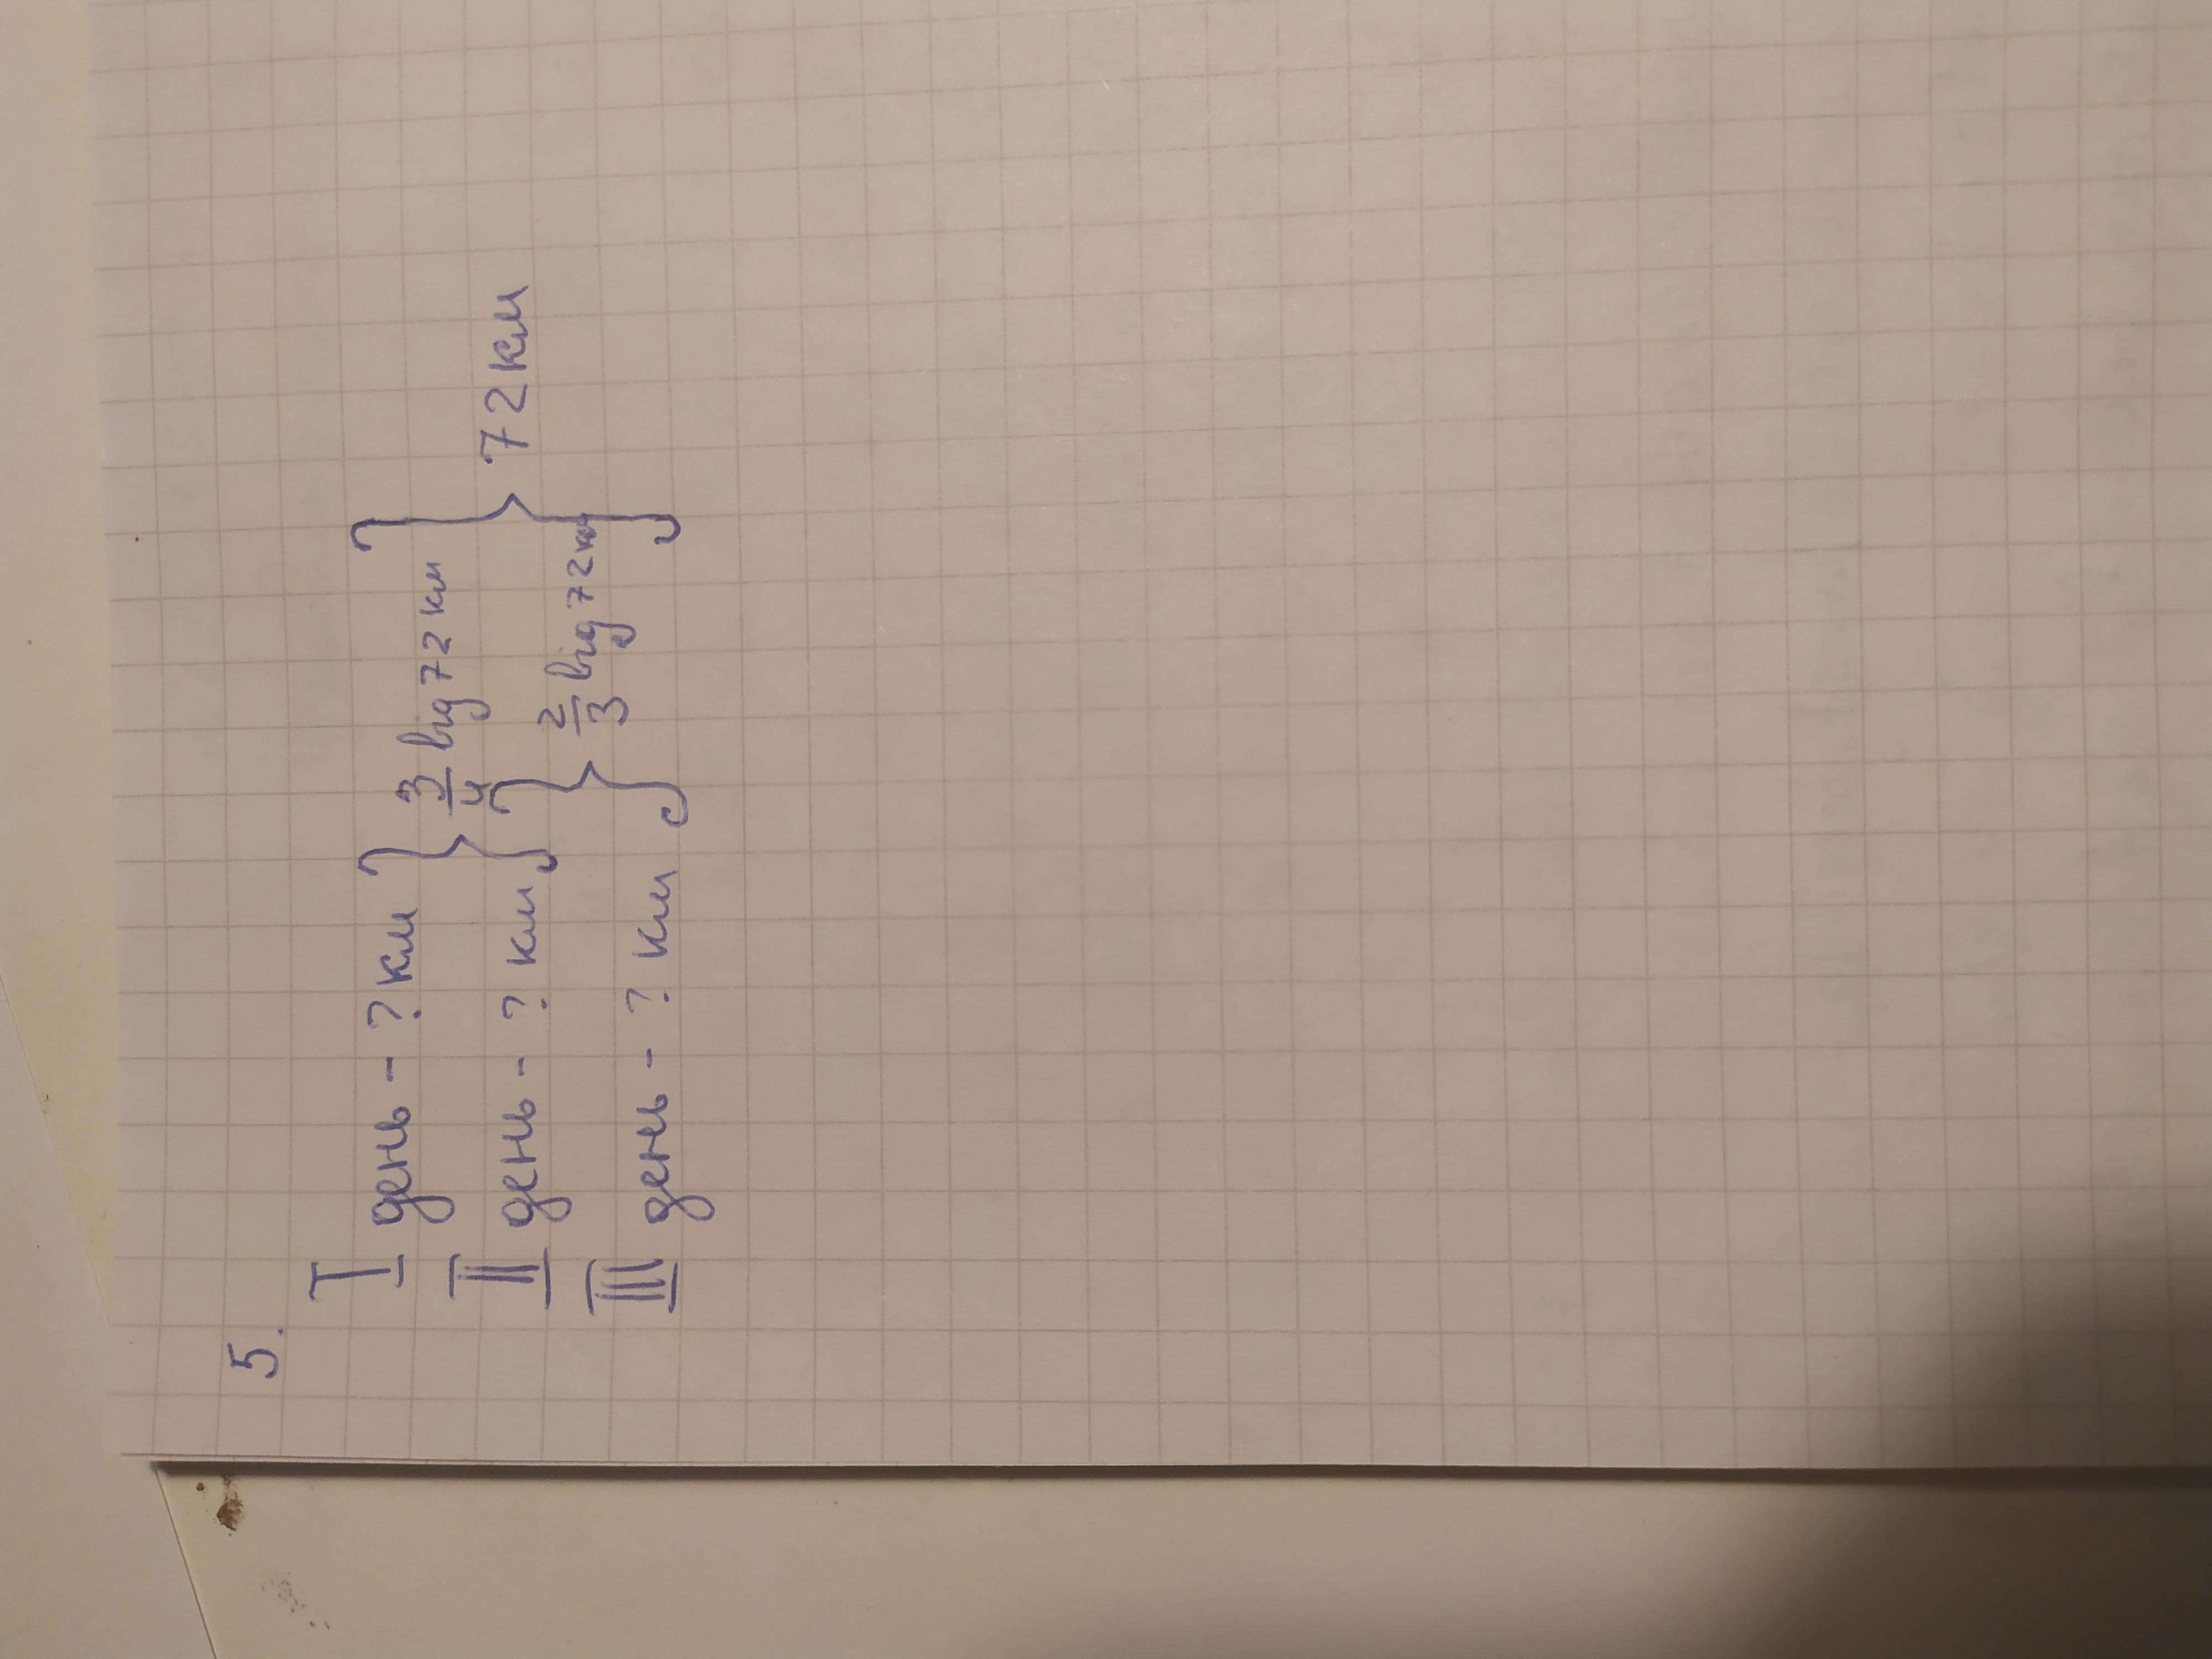 5.
I день - ? км } 3/4 від 72 км
II день - ? км } 2/3 від 72 км } 72 км
III день - ? км